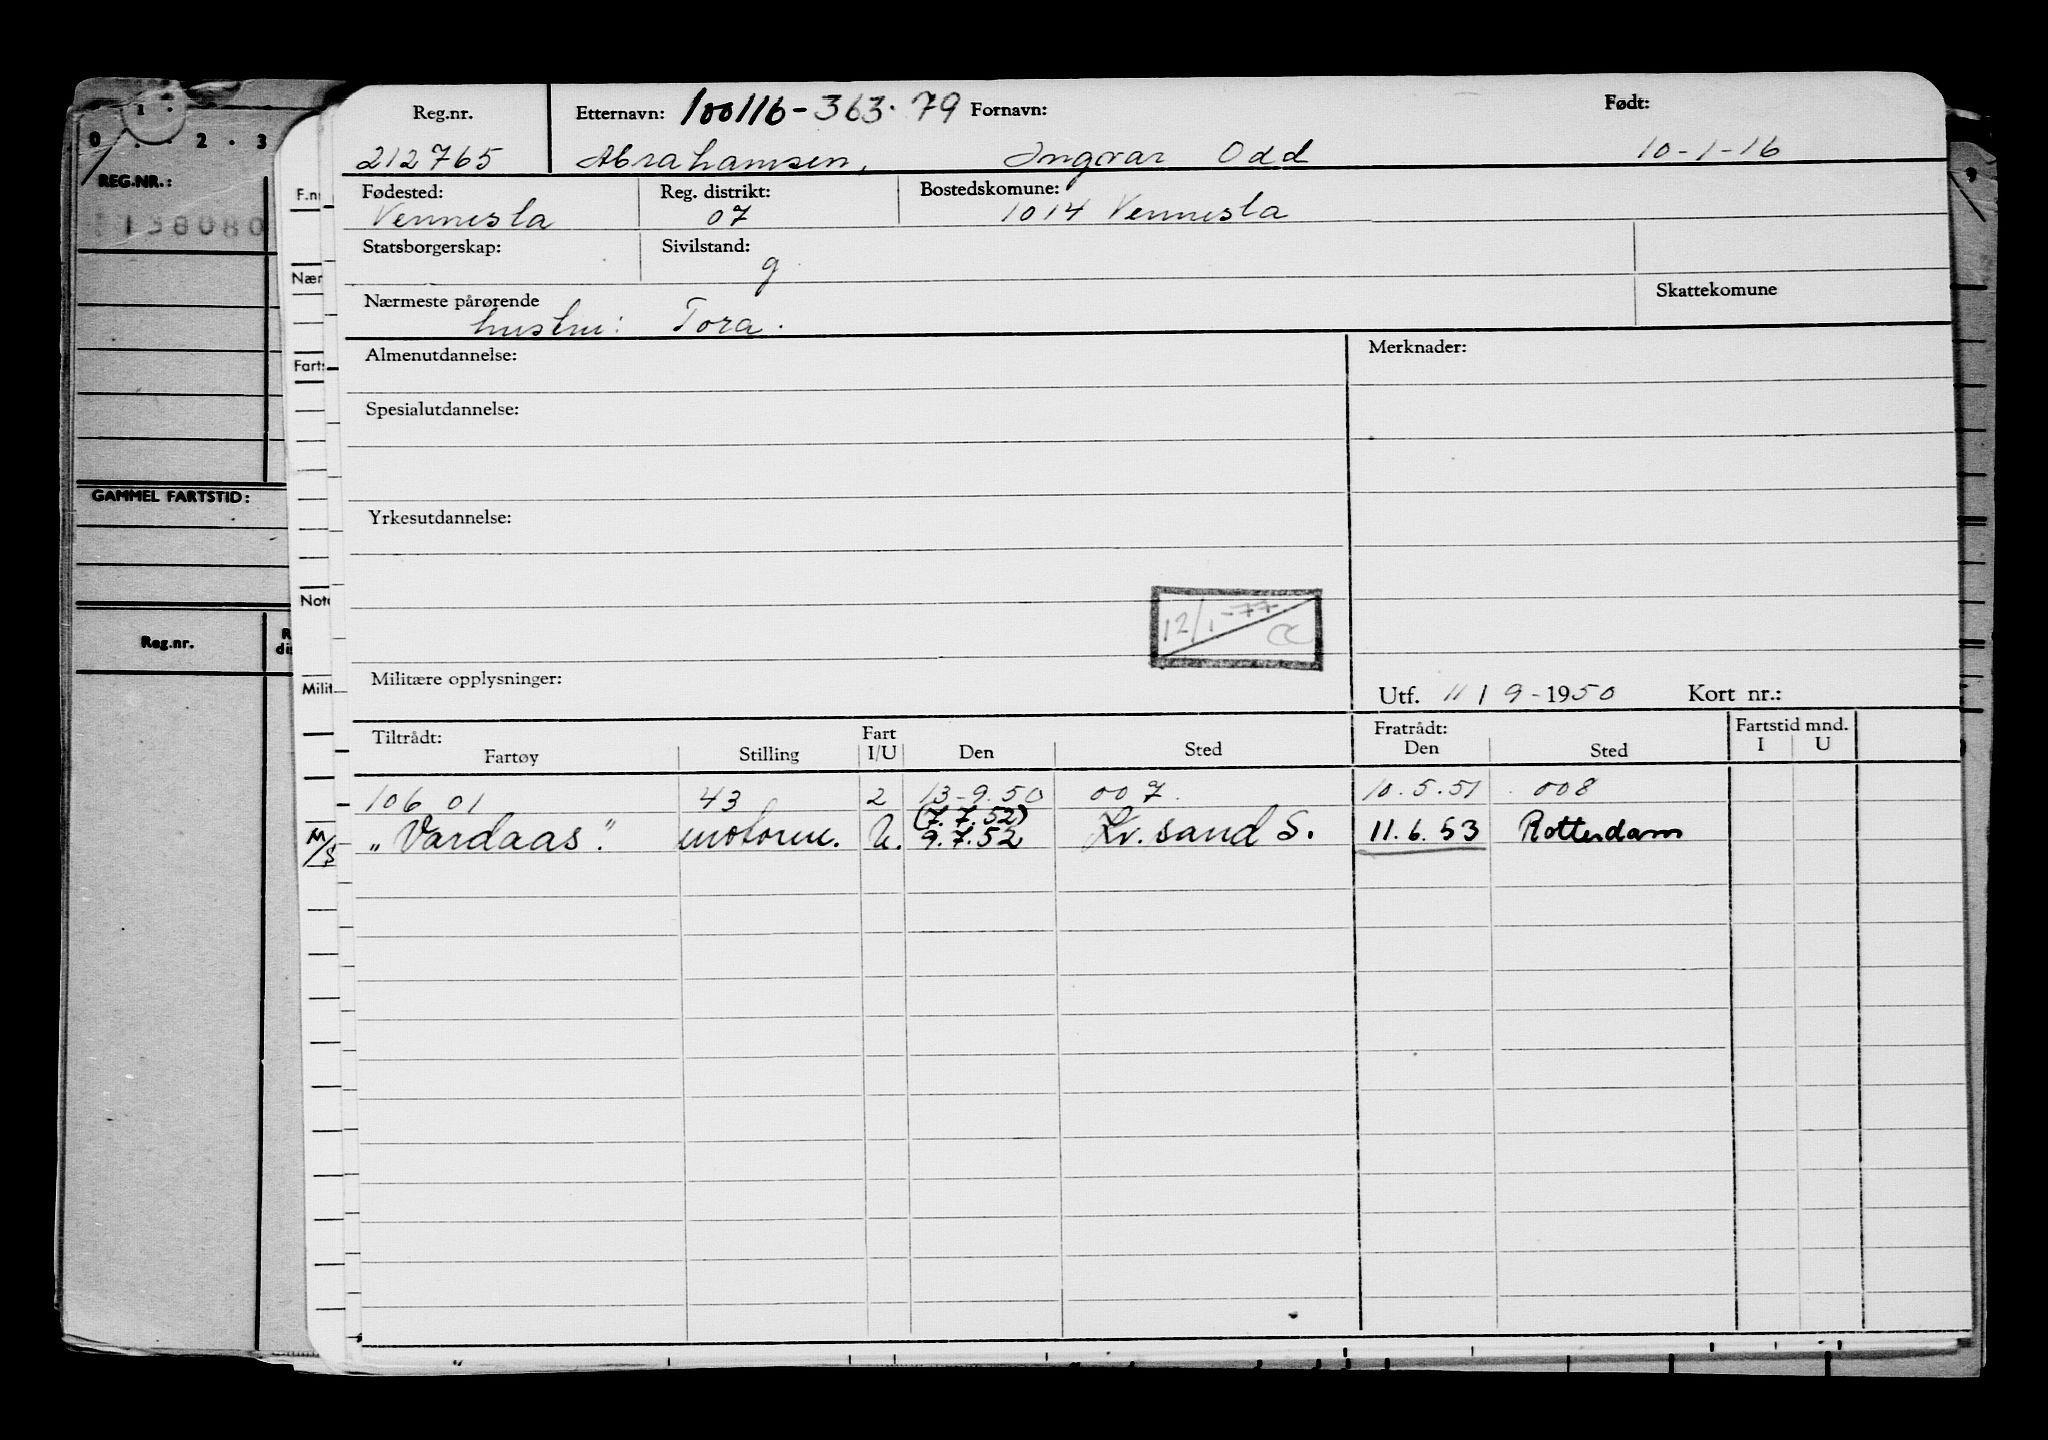 Reg.nr. Etternavn: 100116-363.79 Fornavn: Født:
212765 Abrahamsen, Ingvar Odd 10-1-16
Fødested: Reg. distrikt: Bostedskomune:
Vennesla 07 1014 Vennesla
Statsborgerskap: Sivilstand:
g
Nærmeste pårørende Skattekomune
hustru: Tora.
Almenutdannelse: Merknader:
Spesialutdannelse:
Yrkesutdannelse:
12/1-77
Militære opplysninger:
Utf. 11/9-1950 Kort nr.:
Tiltrådt: Fart Fratrådt: Fartstid mnd.
Fartøy Stilling I/U Den Sted Den Sted I U
106 01 43 2 13-9.50 007. 10.5.51 008
(7.7.52)
M/S "Vardaas". motorm. U. 9.7.52 Kr.sand S. 11.6.53 Rotterdam
0 1 2 3
REG.NR.:
138080
GAMMEL FARTSTID:
Reg.nr. R
dis
F.nr
Nær
Farts
Note
Milit
9